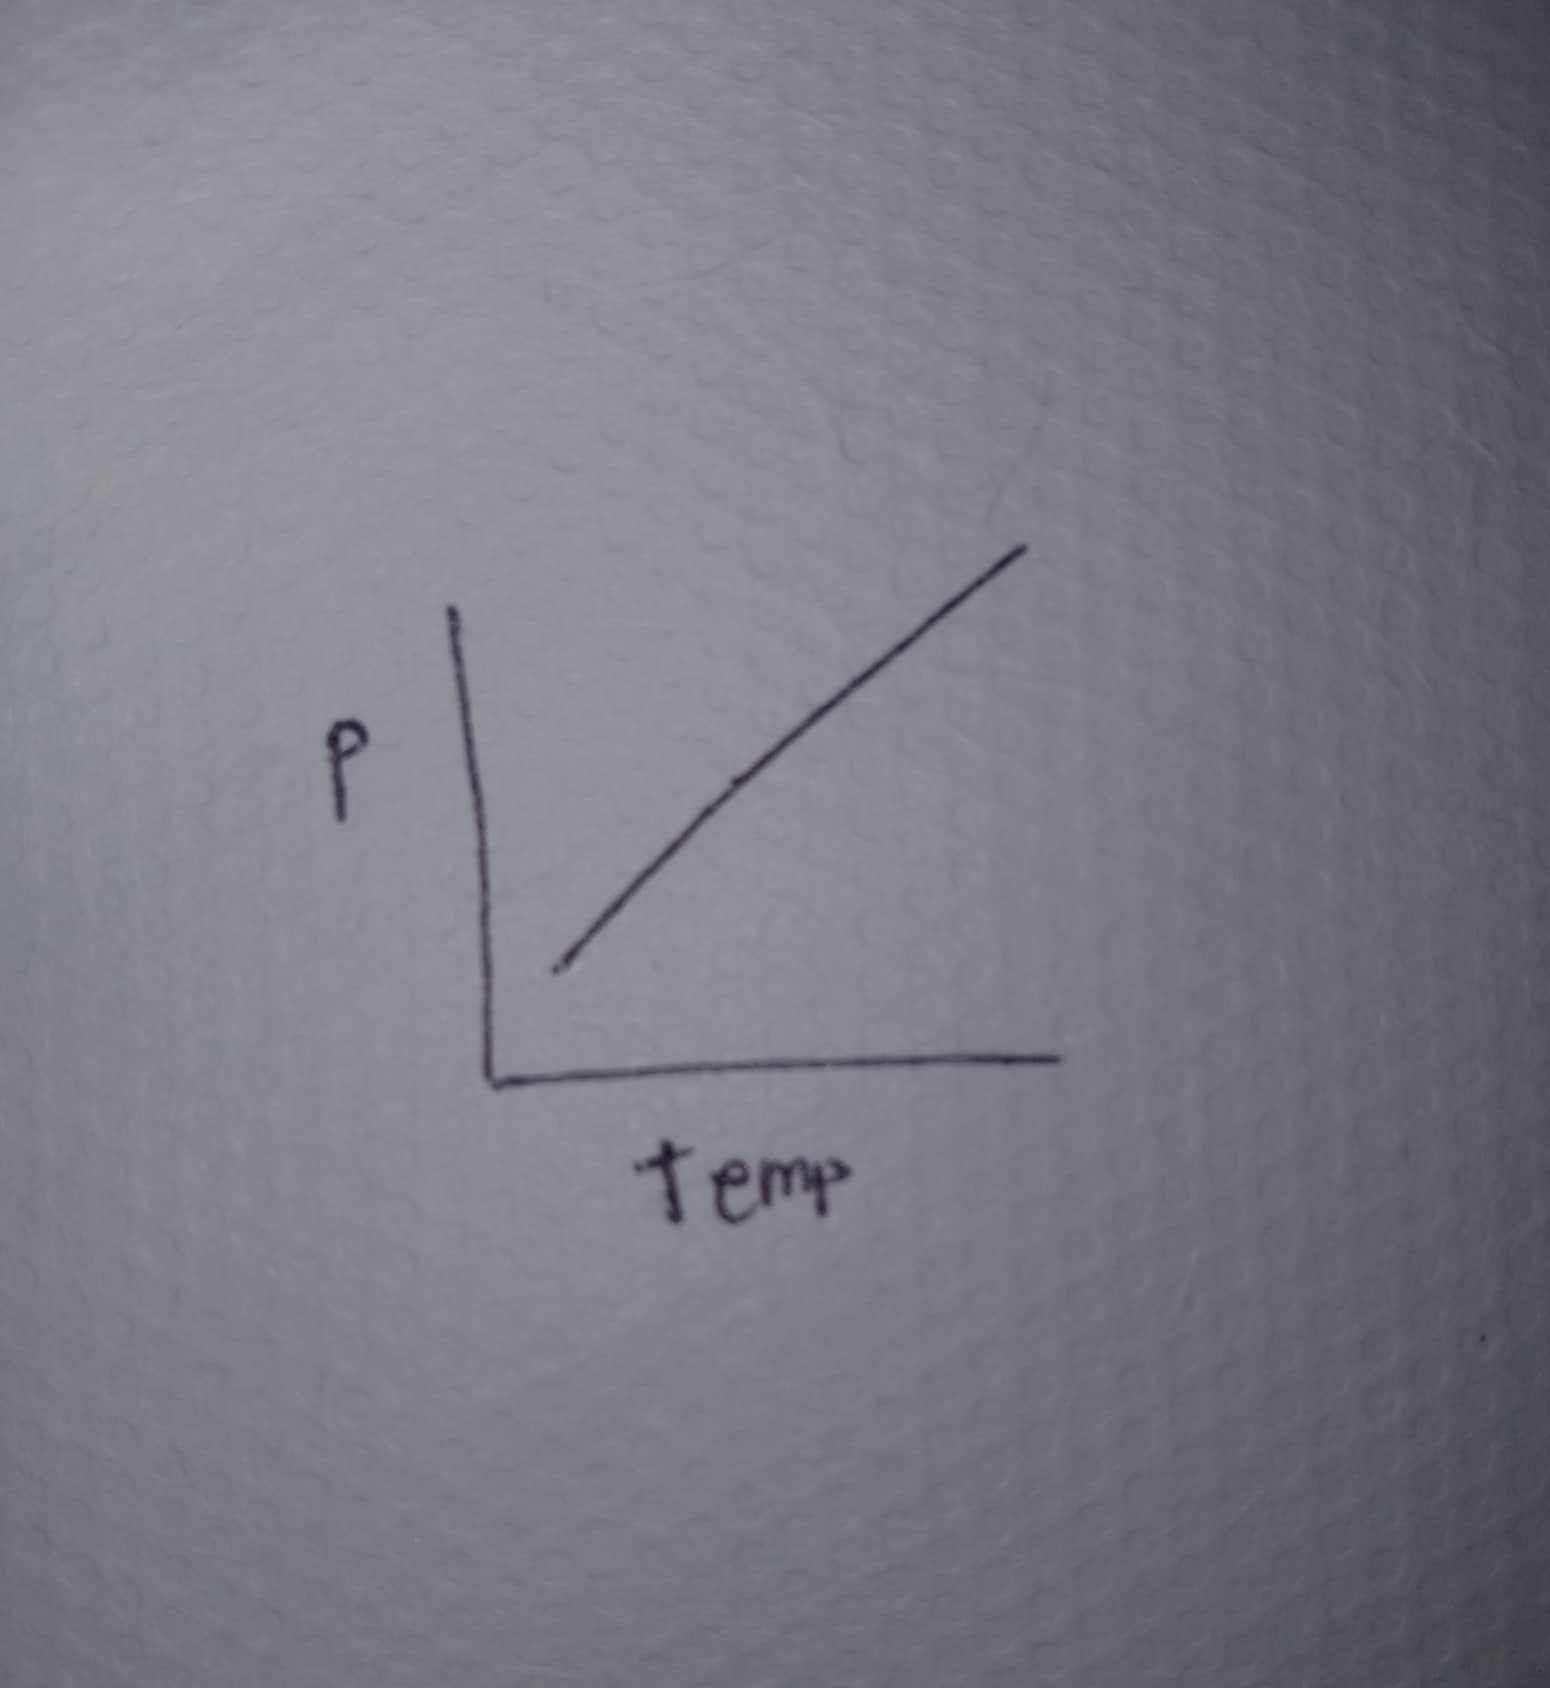 P
Temp